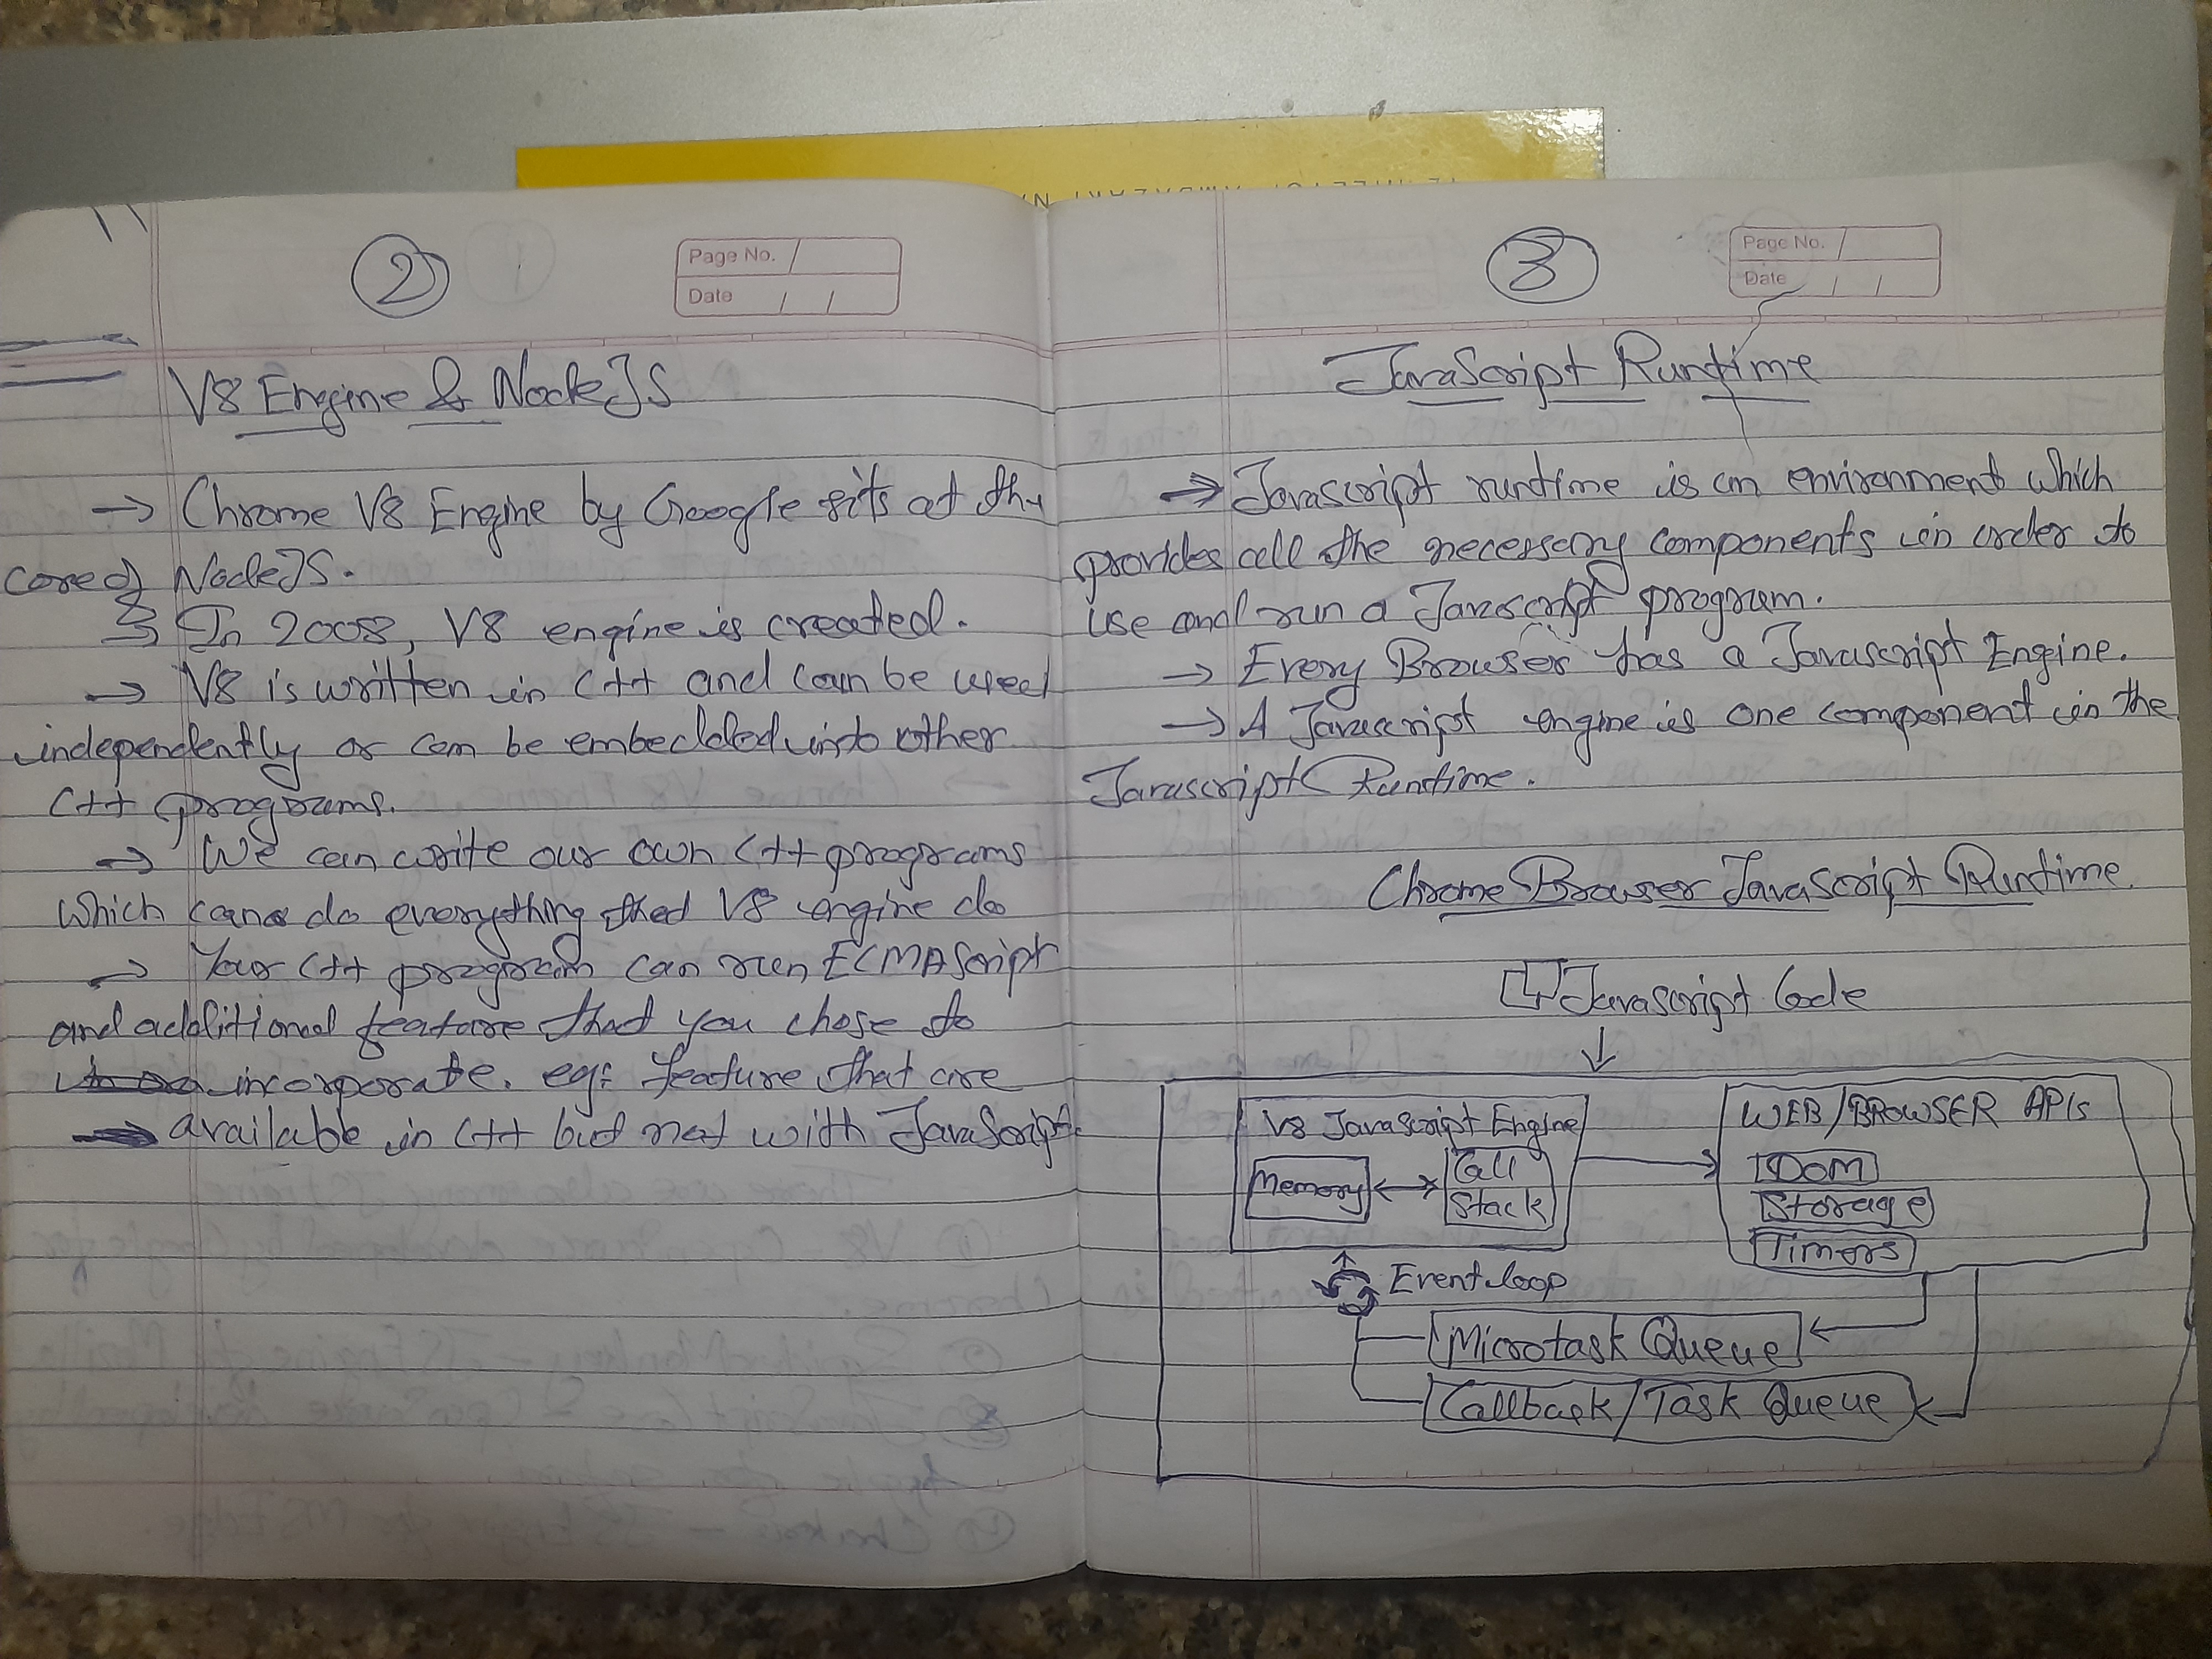 2
Page No.
Date
V8 Engine & NodeJS
→ Chrome V8 Engine by Google sits at the
core of NodeJS.
→ In 2008, V8 engine is created.
→ V8 is written in C++ and can be used
independently or can be embedded into other
C++ programs.
→ We can write our own C++ programs
which can do everything that V8 engine do
→ Your C++ program can run ECMAScript
and additional feature that you chose to
incorporate. eg: feature that are
available in C++ but not with JavaScript.
3
Page No.
Date
JavaScript Runtime
→ Javascript runtime is an environment which
provides all the necessary components in order to
use and run a Javascript program.
→ Every Browser has a Javascript Engine.
→ A Javascript engine is one component in the
Javascript Runtime.
Chrome Browser JavaScript Runtime.
JavaScript Code
↓
V8 JavaScript Engine
Memory ↔ Call
Stack
WEB/BROWSER APIs
DOM
Storage
Timers
Event loop
Microtask Queue
Callback/Task Queue